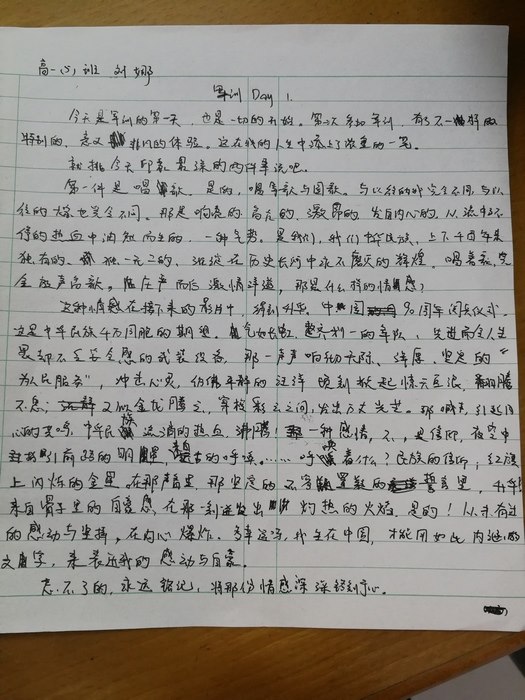 高一(5)班 刘娜
军训 Day 1.
今天是军训的第一天,也是一切的开始。第一次参加军训,有了不一样的
特别的、意义非凡的体验。这在我的人生中添上了浓重的一笔。
就挑今天印象最深的两件事说吧。
第一件是唱军歌。是的,唱军歌与国歌。与以往的完全不同,与以
往的大都也完全不同。那是响亮的、高亢的、激昂的、发自内心的,从流动不
停的热血中油然而生的,一种气势。是我们,我们中华民族,上下千百年来
独有的、独一无二的,汹涌在历史长河中永不磨灭的辉煌。唱着歌,完
全放声高歌。
这种情感在接下来的影片中,得到升华。中国 90周年阅兵仪式,
这是中华民族千万同胞的期望。气势如长虹,整齐划一的车队,先进而令人生
畏却不乏安全感的武装设备,那一声声响彻天际、浑厚、坚定的"
为人民服务",冲击心灵,仿佛平静的汪洋顿刻掀起惊天巨浪,翻腾
不息;又似金龙腾空,穿梭彩云之间,发出万丈光芒。那喊声,引起内
心的共鸣,中华民族流淌的热血,沸腾!一种感情,不,是信仰,夜空中
指引前路的明星,的呼唤……呼唤着什么?民族的信仰;红旗
上闪烁的金星。在那声音里,那坚定的不容置疑的誓言里,
来自骨子里的自豪感,在那一刻迸发出灼热的火焰。是的!从未有过
的感动与坚持,在内心爆炸。多幸运,我生在中国,才能用如此内涵的
文字,来表达我的感动与自豪。
忘不了的,永远铭记,将那份情感深深铭刻于心。